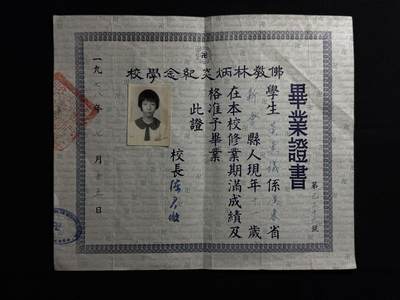 佛教林炳炎紀念學校
畢業證書
第 號
學生 儀係廣東省
新會縣人現年十 歲
在本校修業期滿成績及
格准予畢業
此證
校長
一九七 年七月十 日